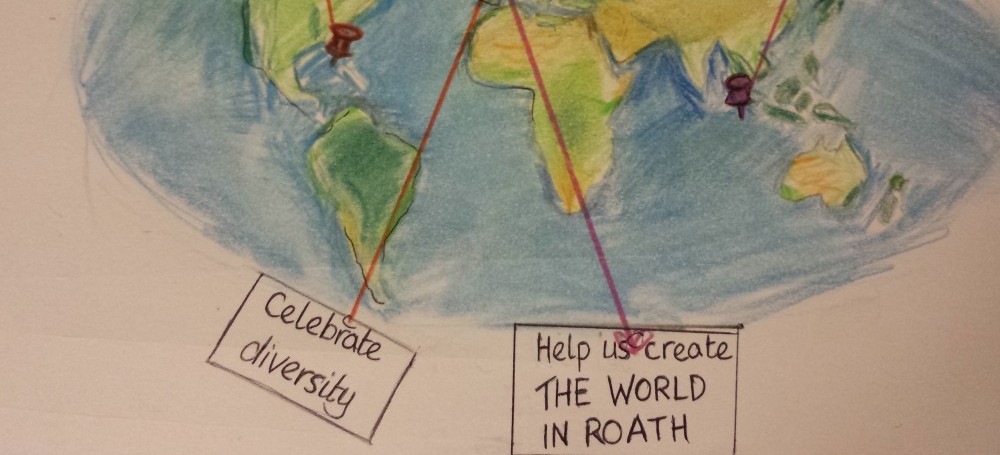 Celebrate
diversity
Help us create
THE WORLD
IN ROATH